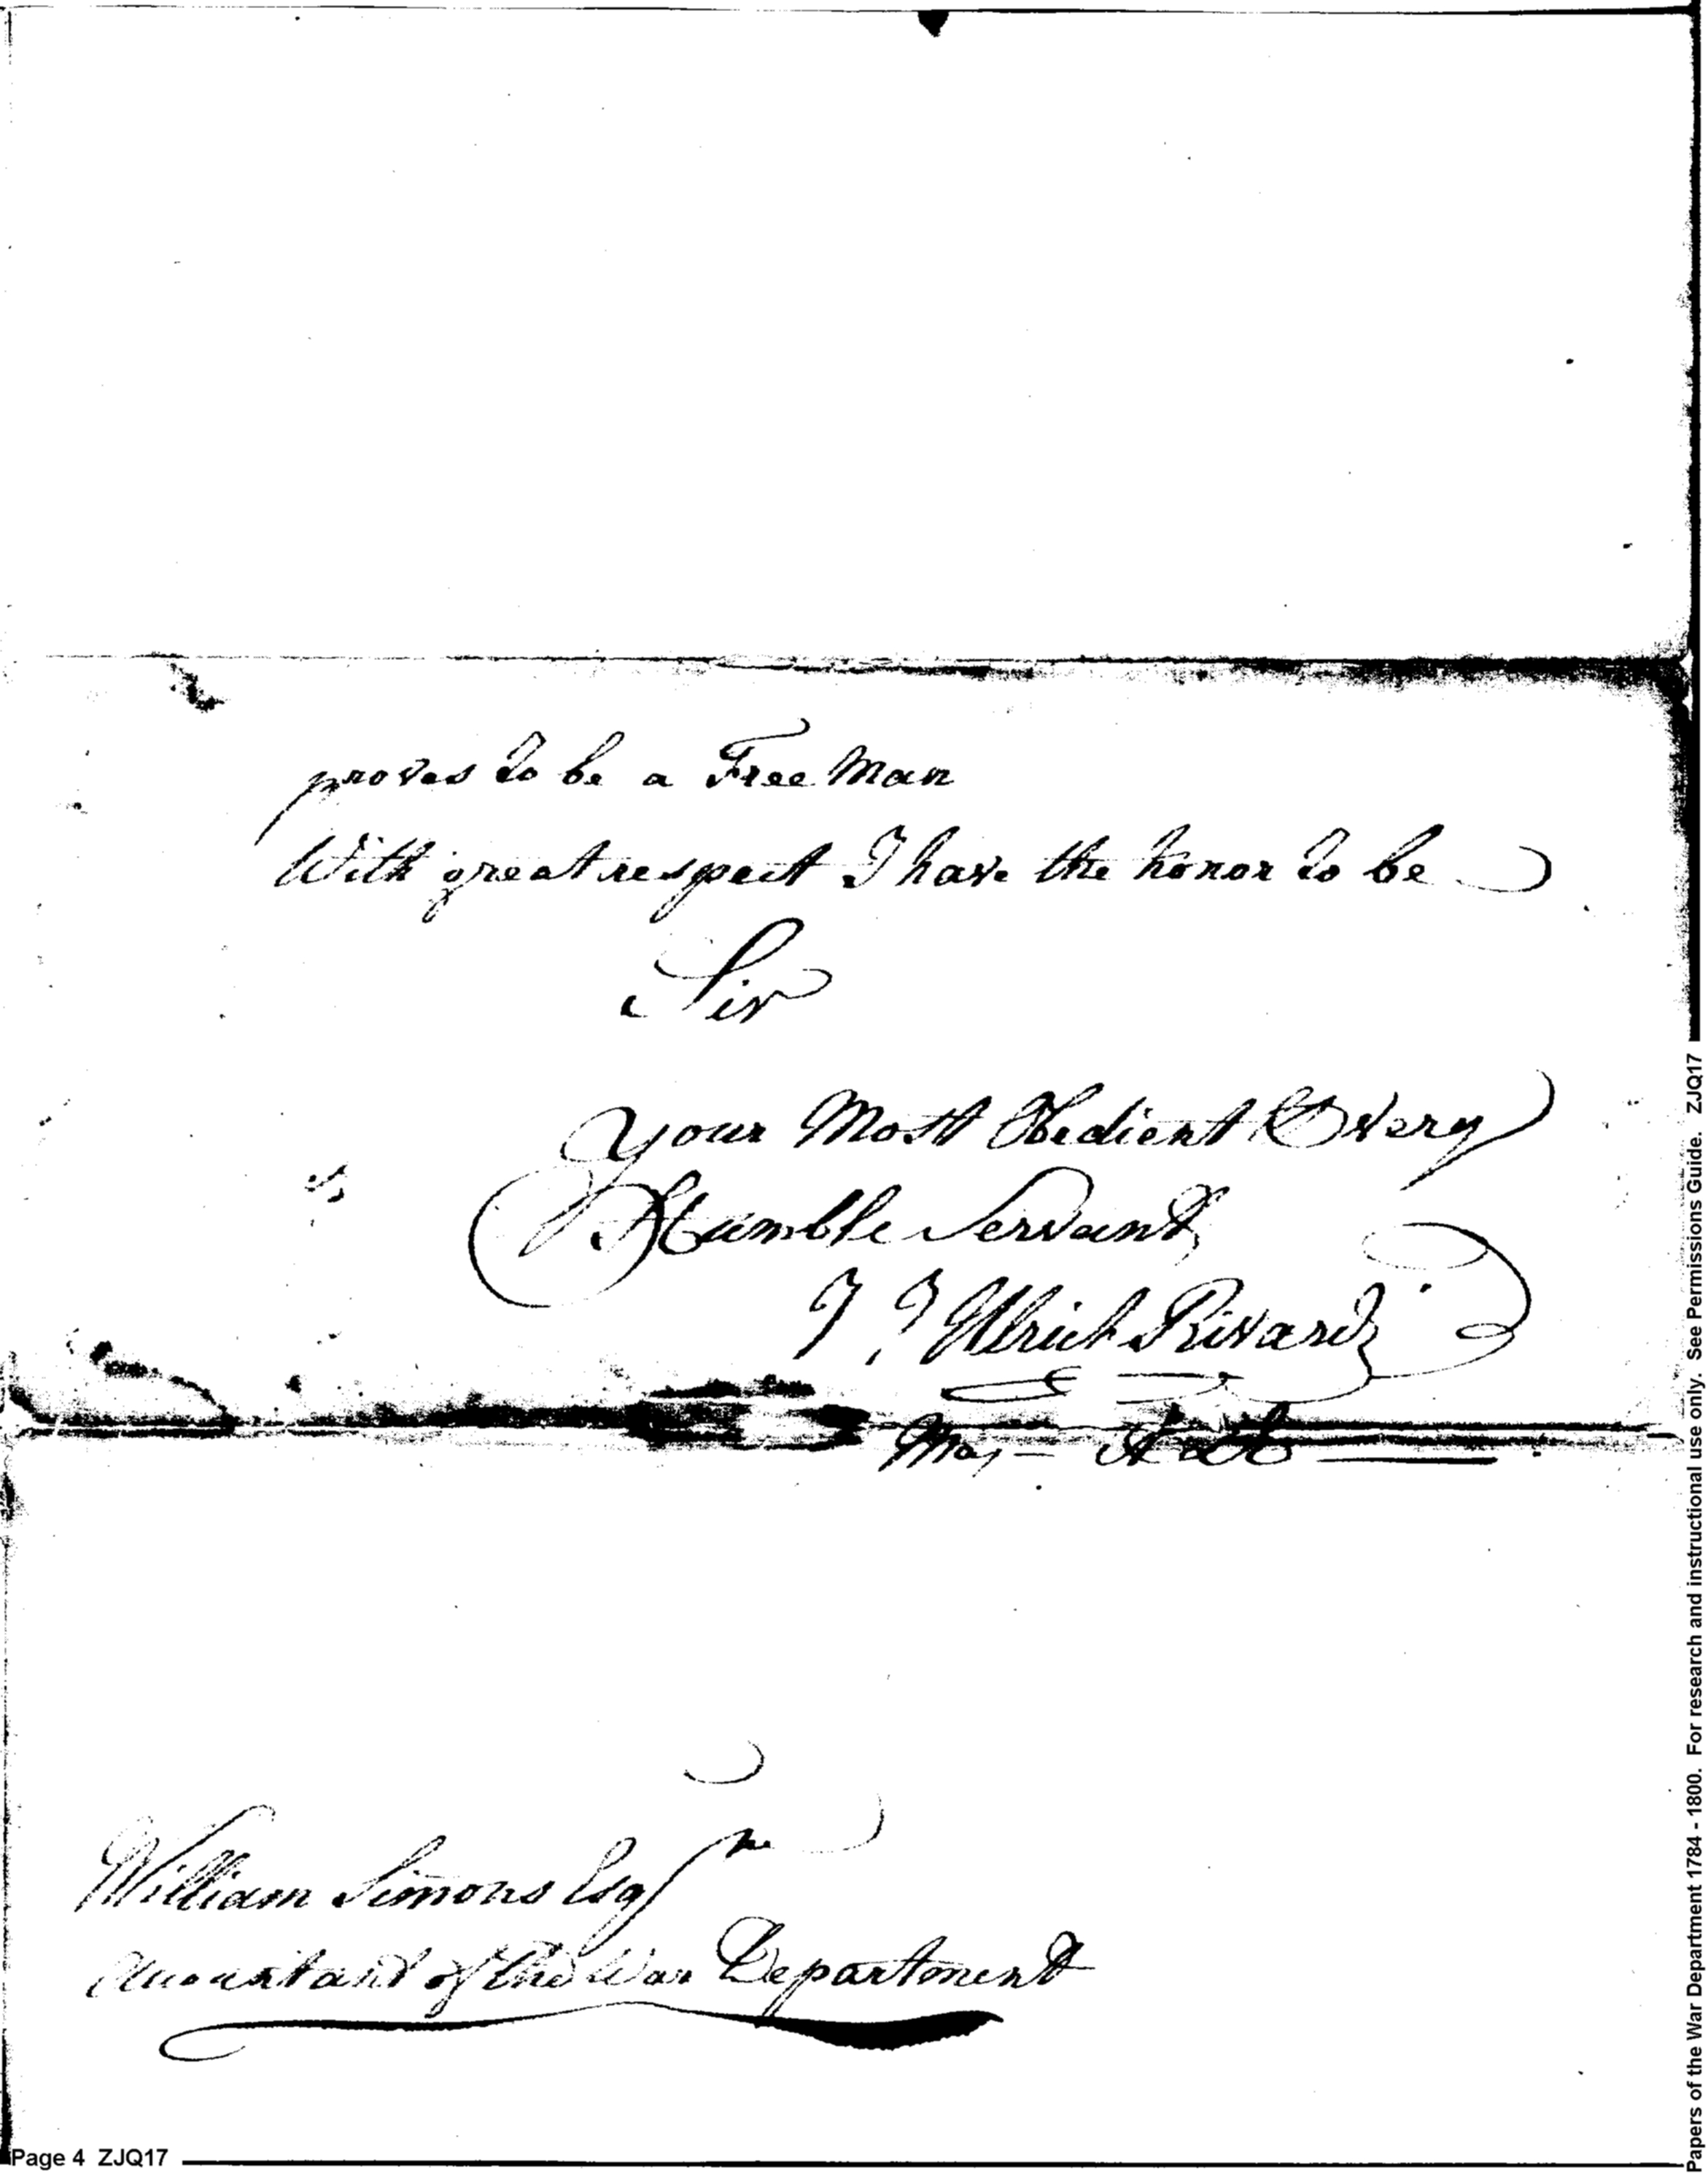 proves to be a Free Man
With great respect I have the honor to be
Sir
Your Most Obedient & very
Humble Servant
J J Ulrich Rivardi
Maj-
William Simons Esqr
Accountant of the War Department
Page 4 ZJQ17
Papers of the War Department 1784 - 1800. For research and instructional use only. See Permissions Guide. ZJQ17